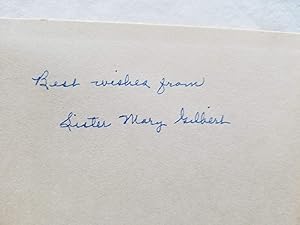 Best wishes from
Sister Mary Gilbert